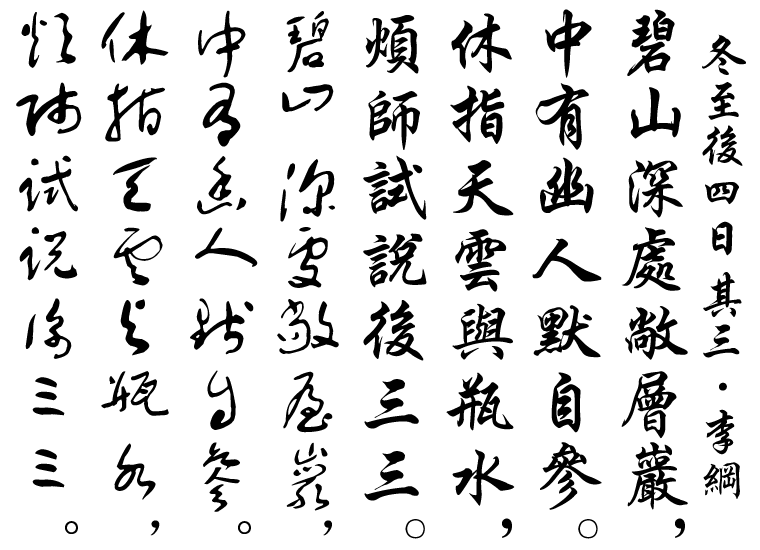 冬至後四日其三·李綱
碧山深處敞層巖，
中有幽人默自參。
休指天雲與瓶水，
煩師試說後三三。
碧山深處敞層巖，
中有幽人默自參。
休指天雲與瓶水，
煩師試說後三三。